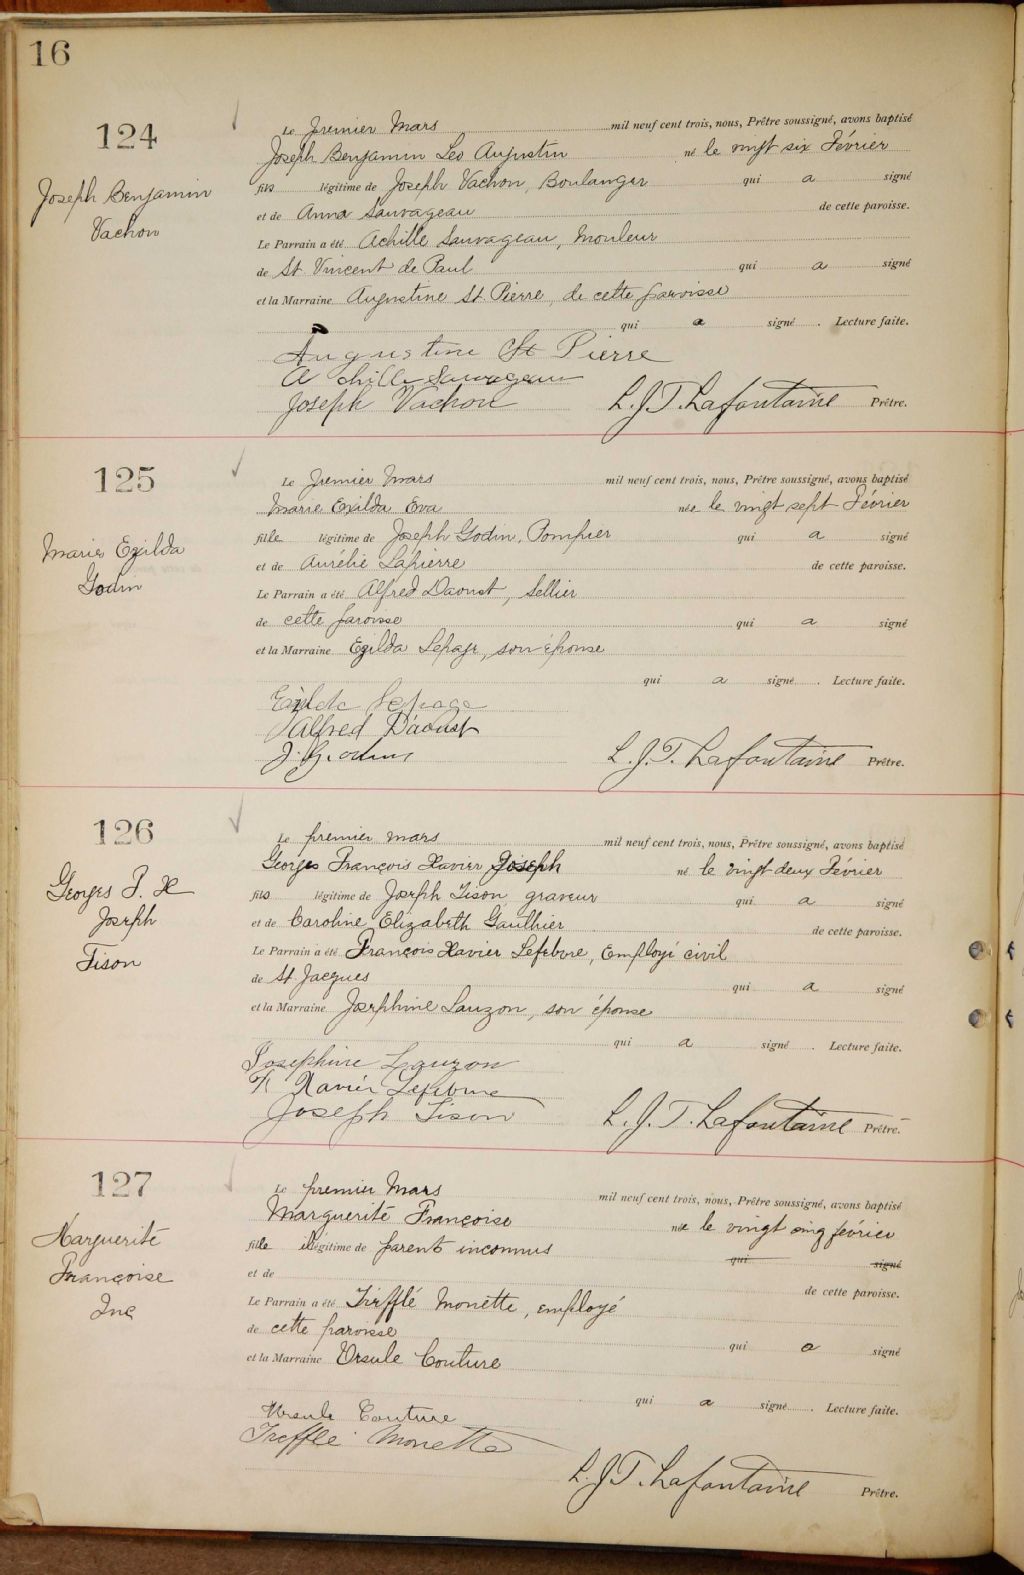 16
124
Joseph Benjamin
Vachon
Le premier Mars mil neuf cent trois, nous, Prêtre soussigné, avons baptisé
Joseph Benjamin Leo Augustin né le vingt six Février
fils légitime de Joseph Vachon, Boulanger qui a signé
et de Anna Sauvageau de cette paroisse.
Le Parrain a été Achille Sauvageau, Mouleur
de St. Vincent de Paul qui a signé
et la Marraine Augustine St. Pierre, de cette paroisse
qui a signé . Lecture faite.
Augustine St Pierre
Achille Sauvageau
Joseph Vachon L. J. T. Lafontaine Prêtre.
125
Marie Exilda
Godin
Le premier Mars mil neuf cent trois, nous, Prêtre soussigné, avons baptisé
Marie Exilda Eva née le vingt sept Février
fille légitime de Joseph Godin, Pompier qui a signé
et de Aurélie Lapierre de cette paroisse.
Le Parrain a été Alfred Daoust, Sellier
de cette paroisse qui a signé
et la Marraine Exilda Lepage, son épouse
qui a signé . Lecture faite.
Exilda Lepage
Alfred D'aoust
J. Godin L. J. T. Lafontaine Prêtre.
126
Georges F. X
Joseph
Tison
Le premier Mars mil neuf cent trois, nous, Prêtre soussigné, avons baptisé
Georges François Xavier Joseph né le vingt deux Février
fils légitime de Joseph Tison, graveur qui a signé
et de Caroline Elizabeth Gaulhier de cette paroisse.
Le Parrain a été François Xavier Lefebvre, Employé civil
de St. Jacques qui a signé
et la Marraine Josephine Lauzon, son épouse
qui a signé . Lecture faite.
Josephine Lauzon
F. Xavier Lefebvre
Joseph Tison L. J. T. Lafontaine Prêtre.
127
Marguerite
Françoise
Inc
Le premier Mars mil neuf cent trois, nous, Prêtre soussigné, avons baptisé
Marguerite Françoise née le vingt cinq février
fille illégitime de parents inconnus qui signé
et de de cette paroisse.
Le Parrain a été Trefflé Monette, employé
de cette paroisse qui a signé
et la Marraine Ursule Couture
qui a signé . Lecture faite.
Ursule Couture
Trefflé Monette
L. J. T. Lafontaine Prêtre.